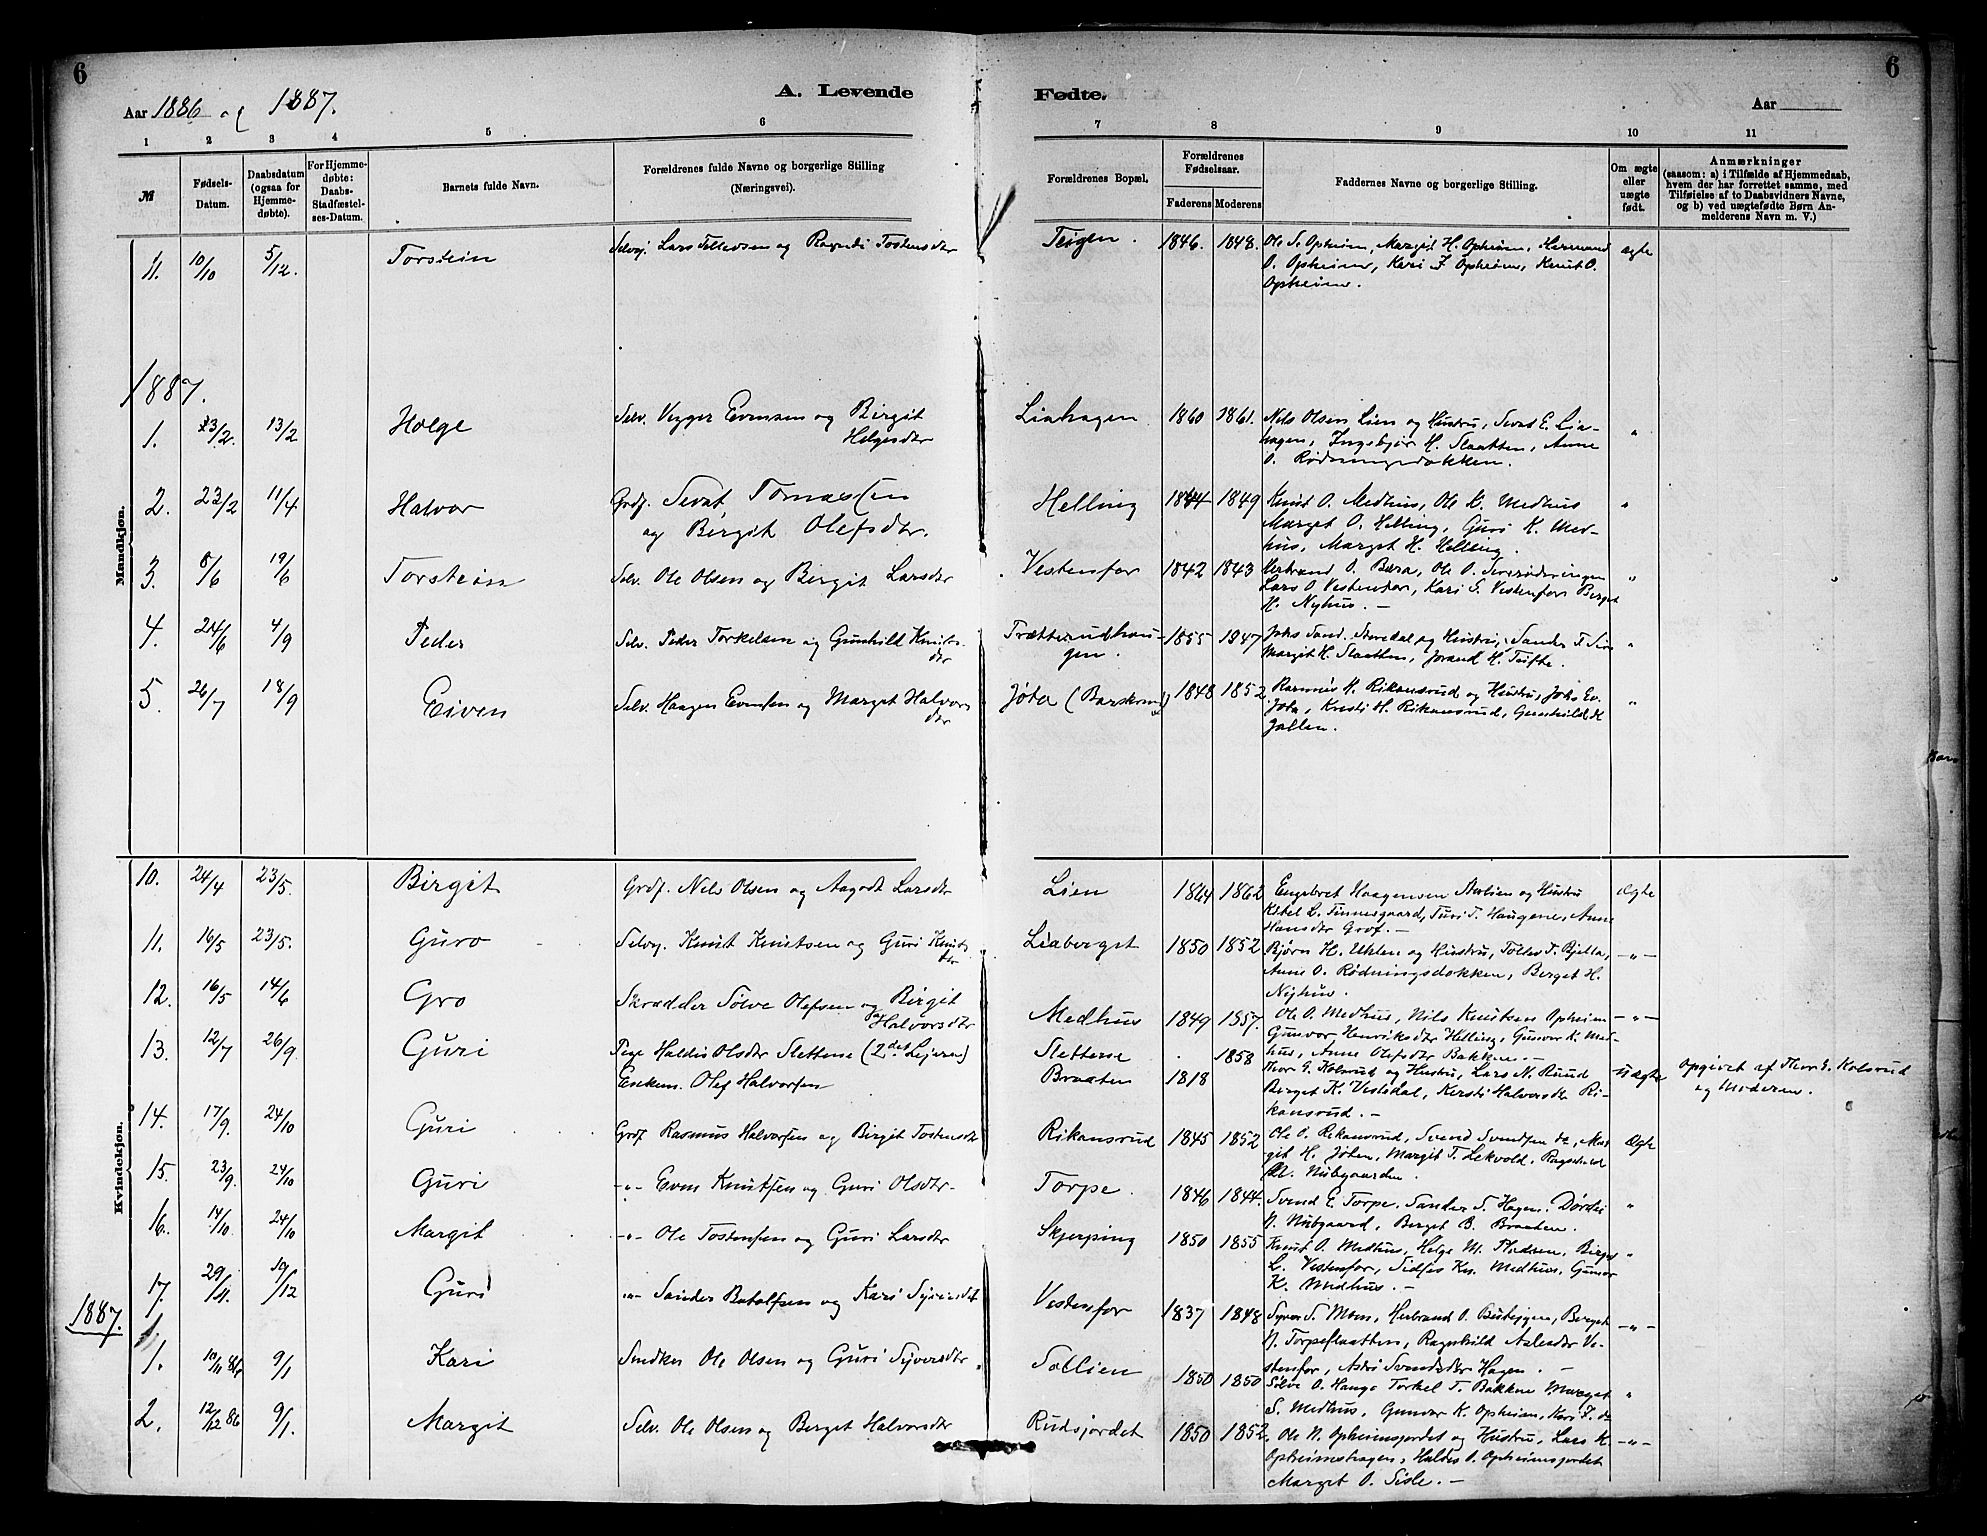 6
6
Aar 1886 og 1887.
A. Levende
Fødte.
Aar
1 2 3 4 5 6 7 8 9 10 11
№
Fødsels-Datum.
Daabsdatum (ogsaa for Hjemme-døbte).
For Hjemme-døbte: Daabs-Stadfæstel-ses-Datum.
Barnets fulde Navn.
Forældrenes fulde Navne og borgerlige Stilling (Næringsvei).
Forældrenes Bopæl.
Forældrenes Fødselsaar.
Faderens Moderens
Faddernes Navne og borgerlige Stilling.
Om ægte eller uægte født.
Anmærkninger
(saasom: a) i Tilfælde af Hjemmedaab,
hvem der har forrettet samme, med
Tilføielse af to Daabsvidners Navne,
og b) ved uægtefødte Børn An-
melderens Navn m. V.)
Mandkjøn.
11. 10/10 5/12. Torstein Selvej Lars Tollevsen og Ragndi Tostensdtr Teigen. 1846. 1848. Ole S. Opheim, Margit H. Opheim, Herman
O. Opheim, Kari T Opheim, Knut O.
Opheim.
ægte
1887.
1. 13/2. 13/2 Helge Selv. Vegger Evensen og Birgit
Helgesdtr
Liahagen 1860 1861. Nils Olsen Lien og Hustru, Sevat E. Lia-
hagen, Ingebjør H. Slaatten, Anne
O. Rødningsdokken.
"
2. 23/2 11/4 Halvor Grdf. Sevat Tomassen
og Birgit Olefsdtr.
Helling 1844 1849 Knut O. Medhus, Ole K. Medhus
Marget O. Helling, Guri K. Med-
hus, Marget H. Helling.
"
3. 8/6 19/6 Torstein Selv. Ole Olsen og Birgit Larsdtr Vestenfor 1842 1843 Herbrand O. Bæra, Ole O.
Lars O Vestenfor, Kari S. Vestenfor Berget
H. Nyhus. —
"
4. 24/6 4/9 Peder Selv. Peder Torkelsen og Gunhild Knuts-
dtr
Trætterudhau-
gen.
1855 1847 Johs Sand. Stordal og Hustru, Sander T.
Margit H. Slaatten, Jorand H. Tufte.
"
5. 26/7 18/9 Eiven Selv. Haagen Evensen og Marget Halvors
dtr
Jøta 1848 1852 Rasmus H. Rikansrud og Hustru, Johs Ev.
Jøta, Kristi H. Rikansrud, Gunhild H
Jallen.
"
Kvindekjøn.
10. 24/4 23/5. Birgit Grdf. Nils Olsen og Aagodt Larsdtr Lien 1864 1862 Engebret Haagensen Aalien og Hustru
Kittel L. Finnesgaard, Turi T. Haugene, Anne
Hansdtr Grøf. —
Ægte
11. 16/5 23/5. Guro Selvej. Knut Knutsen og Guri Knuts
dtr
Liaberget 1850 1852 Bjørn H. Uklen og Hustru, Tollev T. Bjella,
Anne O. Rødningsdokken, Berget H.
Nyhus.
— " —
12. 16/5 14/6 Gro Skrædder Sølve Olefsen og Birgit
Halvorsdtr
Medhus 1849 1857. Ole O. Medhus, Nils Knutsen Opheim
Gunvor Henriksdtr Helling, Gunvor K. Med-
hus, Anne Olefsdtr Bakken. —
— " —
13. 12/7 26/9. Guri Pige Haldis Olsdtr Slettene (2det Lejerm)
Enkem. Olef Halvorsen
Slettene
Braaten
1858
1818
Thor G. Kolsrud og Hustru, Lars N. Ruud
Berget K. Vestedal, Kersti Halvorsdtr Ri-
kansrud. —
Uægte
Opgivet af Thor G. Kolsrud
og Moderen.
14. 17/9. 24/10 Guri Grdf Rasmus Halvorsen og Birgit Tostensdtr Rikansrud 1845 1852 Ole O. Rikansrud, Svend Svendsen de, Mar-
git H. Jøten, Margit T. Lekvold, Ragnhild
Nubgaarden.
Ægte
15. 23/9. 24/10 Guri — " — Even Knutsen og Guri Olsdtr Torpe. 1846 1844. Svend E. Torpe, Sander S. Hagen, Dordei
N. Nubgaard, Berget B. Braaten.
"
16. 14/10. 24/10 Margit — " — Ole Tostensen og Guri Larsdtr Skjerping 1850 1855 Knut O. Medhus, Helge M. Birget
L. Vestenfor, Kn. Medhus, Gunvor
K. Medhus. —
"
17. 29/11. 19/12 Guri — " — Sander Botolfsen og Kari Syversdtr Vestenfor 1837 1848 Syver S. Moen, Herbrand O. Berget
N. Torpeslaatten, Ragnhild Asledtr Ve-
stenfor, Astri Svendsdtr Hagen. —
— " —
1887.
1. 10/11 86 9/1 Kari Snedker Ole Olsen og Guri Syversdtr. Sollien 1850 1850 Sølve O. Hauge Torkel T. Bakken Marget
S. Medhus, Gunvor K. Opheim, Kari T. de
"
2. 12/12 86 9/1. Margit Selv. Ole Olsen og Berget Halvorsdtr Rudsjordet 1850 1852. Ole N. Opheimsjordet og Hustru, Lars K.
Opheimshagen, Haldis O. Opheimsjordet
Marget O. Sisle. —
— " —